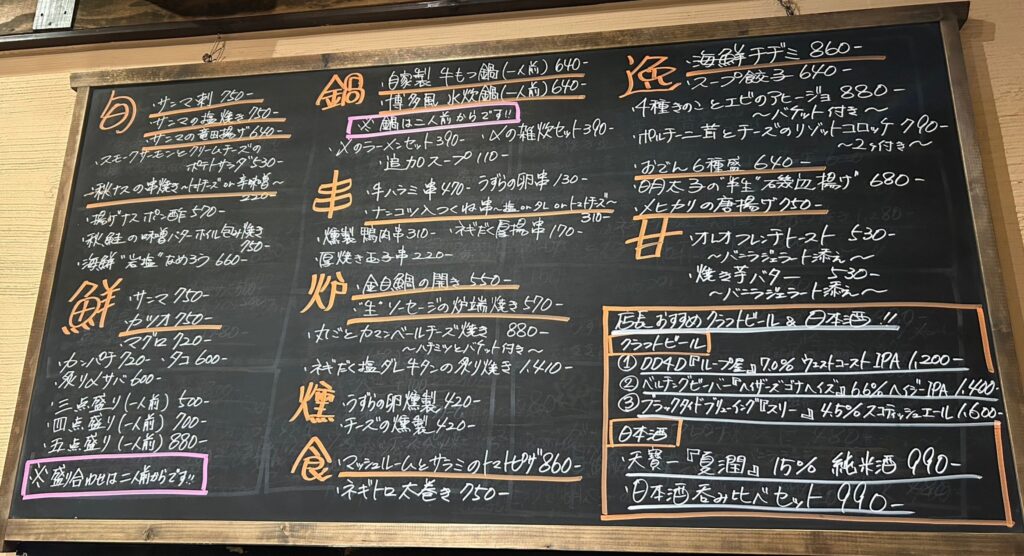 旬
・サンマ刺 750-
・サンマの塩焼き 750-
・サンマの竜田揚げ 640-
・スモークサーモンとクリームチーズの
ポテトサラダ 530-
・秋ナスの串焼き〜トマトチーズ or 辛味噌〜
220-
・揚げナスポン酢 570-
・秋鮭の味噌バターホイル包み焼き
750-
・海鮮"岩塩"なめろう 660-
鮮
・サンマ 750-
・カツオ 750-
・マグロ 720-
・カンパチ 720 ・タコ 600-
・炙り〆サバ 600-
・三点盛り(一人前) 500-
・四点盛り(一人前) 700-
・五点盛り(一人前) 880-
※盛り合わせは二人前からです!!
鍋
・自家製 牛もつ鍋(一人前) 640-
・博多風 水炊鍋(一人前) 640-
※ 鍋は二人前からです!!
・〆のラーメンセット 390- ・〆の雑炊セット 390-
・追加スープ 110-
串
・牛ハラミ串 470- ・うずらの卵串 130-
・ナンコツ入つくね串〜塩 or タレ or トマトチーズ〜
310-
・燻製鴨肉串 310- ・ネギだく厚揚串 170-
・厚焼き玉子串 220-
炉
・金目鯛の開き 550-
・"生"ソーセージの炉端焼き 570-
・丸ごとカマンベールチーズ焼き 880-
〜ハチミツとバケット付き〜
・ネギだく塩ダレ牛タンの炙り焼き 1.410-
燻
・うずらの卵燻製 420-
・チーズの燻製 420-
食
・マッシュルームとサラミのトマトピザ 860-
・ネギトロ太巻き 750-
逸
・海鮮チヂミ 860-
・スープ餃子 640-
・4種きのことエビのアヒージョ 880-
〜バケット付き〜
・ポルチーニ茸とチーズのリゾットコロッケ 790-
〜2ヶ付き〜
・おでん6種盛 640-
・明太子の"半生"磯辺揚げ 680-
・メヒカリの唐揚げ 750-
甘
・オレオフレンチトースト 530-
〜バニラジェラート添え〜
・焼き芋バター 530-
〜バニラジェラート添え〜
店長おすすめクラフトビール&日本酒!!
クラフトビール
① DD4D『ループ屋』7.0% ウエストコーストIPA 1,200-
② ベルチングビーバー『ヘイザーズゴナヘイズ』6.6% ヘイジーIPA 1.400-
③ ブラックタイドブリューイング『スリー』4.5% スコティッシュエール 1.600-
日本酒
・天寶一『夏潤』15% 純米酒 990-
・日本酒呑み比べセット 990-